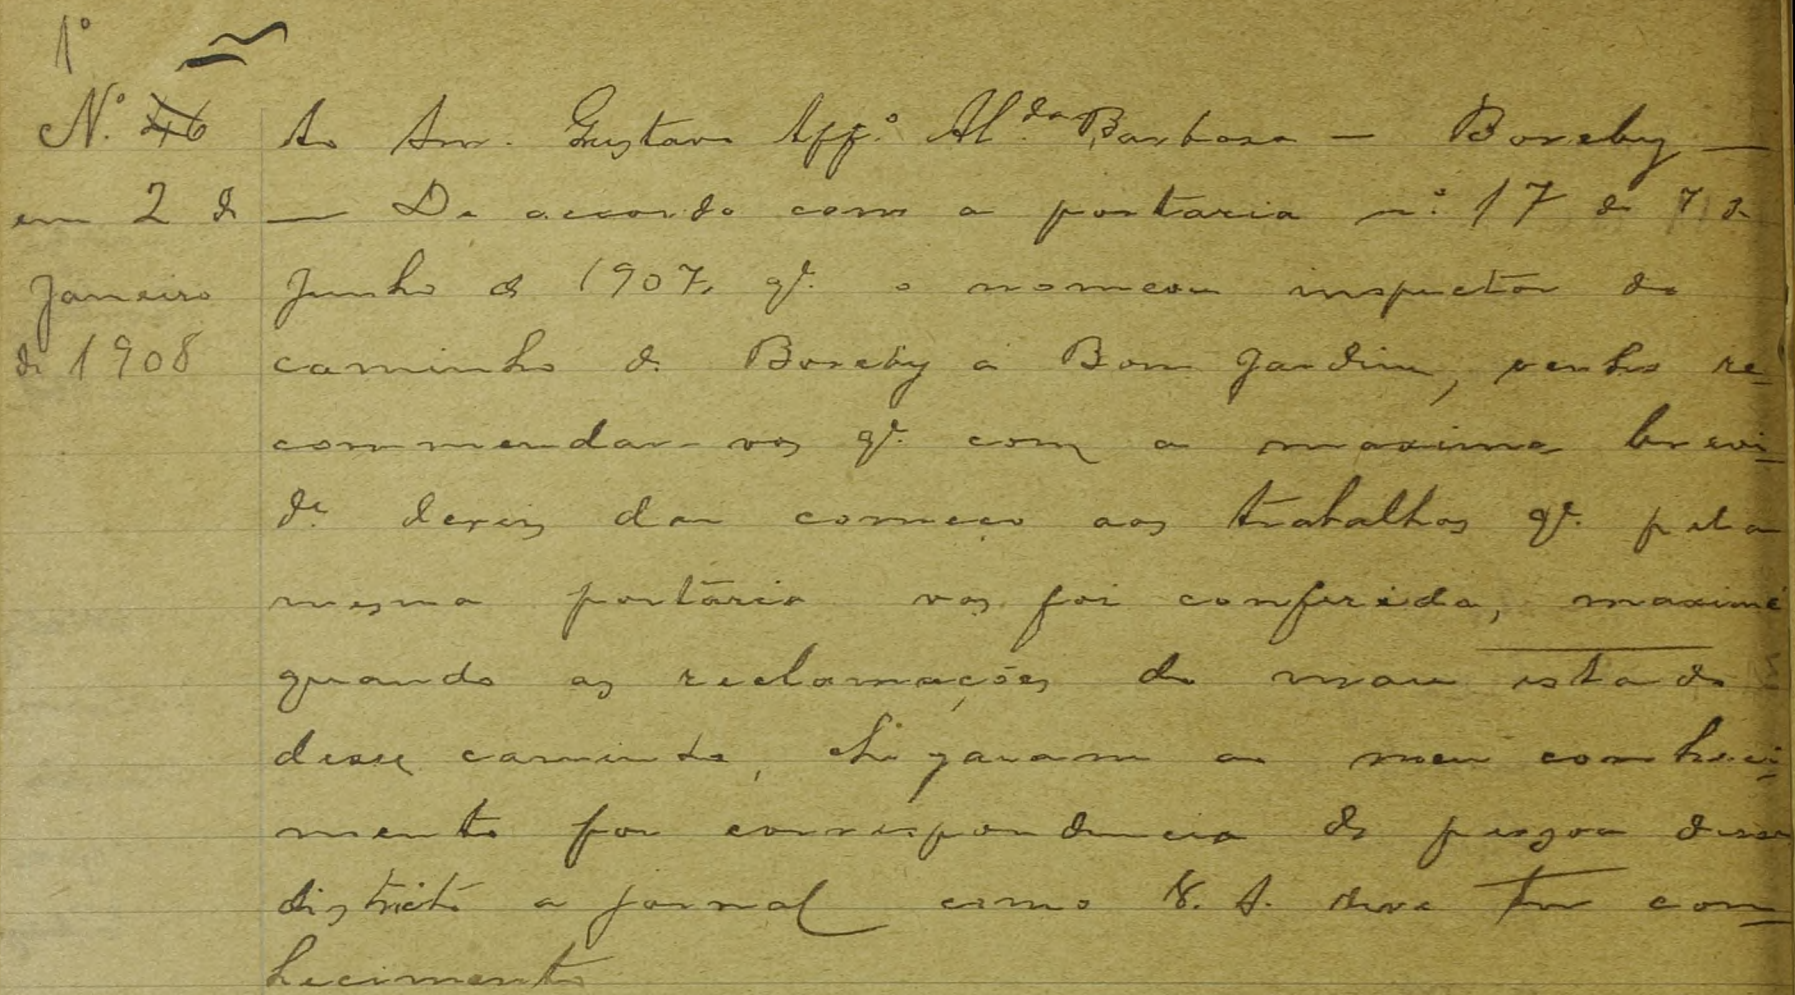 1º
Nº 46
em 2 de
Janeiro
de 1908
Ao Snr. Gustavo Affº Alda Barbosa — Boreby —
— De accordo com a portaria nº 17 de 7 de
Junho de 1907, qe. o nomeou inspector do
caminho de Boreby a Bom Jardim, venho re-
commendar-vos qe. com a maxima brevi-
de. deveis dar começo aos trabalhos qe. pela
mesma portaria vos foi conferida, maximé
quando as reclamações do mau estado
desse caminho, chegaram ao meu conheci-
mento por correspondencia de pessoa desse
districto a jornal como V. S. deve ter con-
hecimento